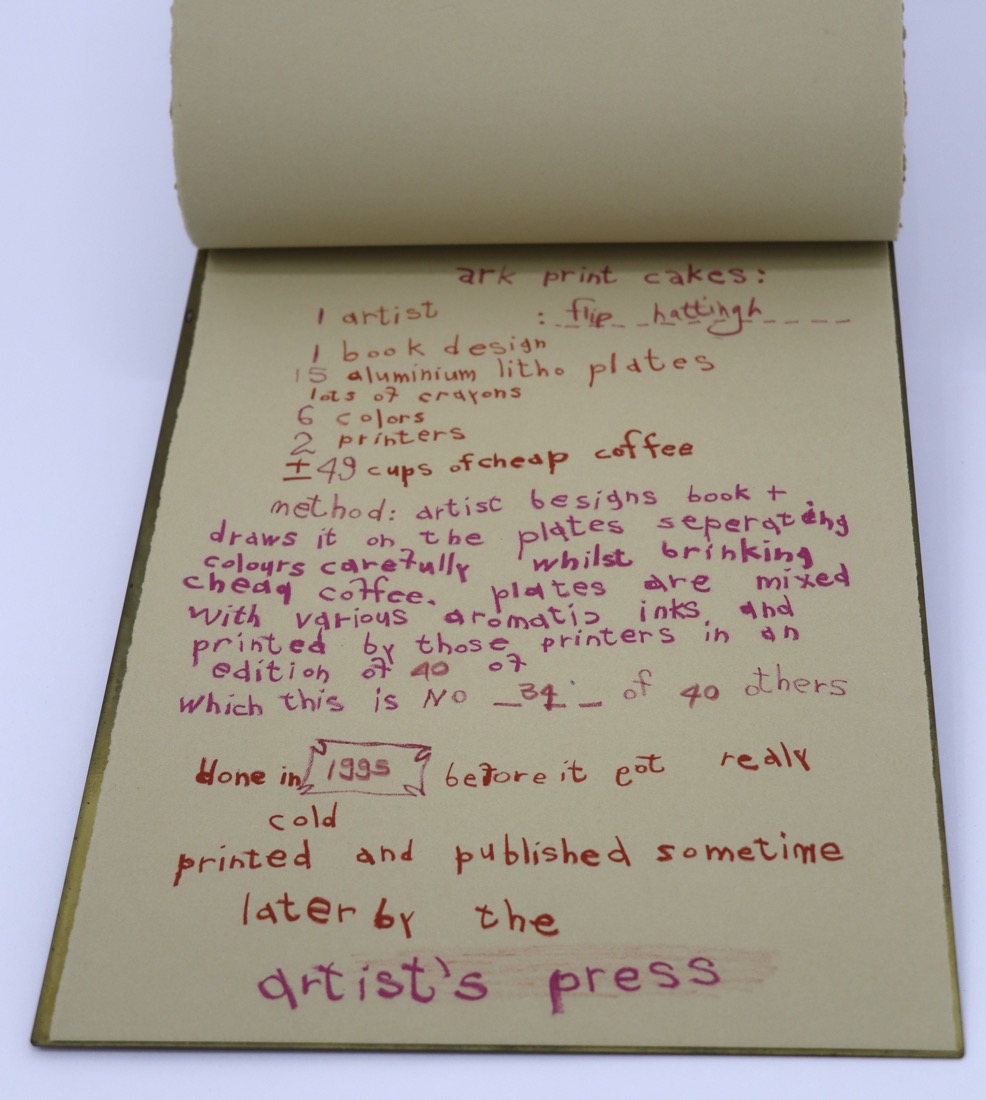 ark print cakes:
1 artist : flip hattingh
1 book design
15 aluminium litho plates
lots of crayons
6 colors
2 printers
± 49 cups of cheap coffee
method: artist besigns book +
draws it on the plates seperating
colours carefully whilst brinking
cheaq coffee. plates are mixed
with various aromatic inks and
printed by those printers in an
edition of 40 of
which this is No 34 of 40 others
done in 1995 before it got realy
cold
printed and published sometime
later by the
artist's press